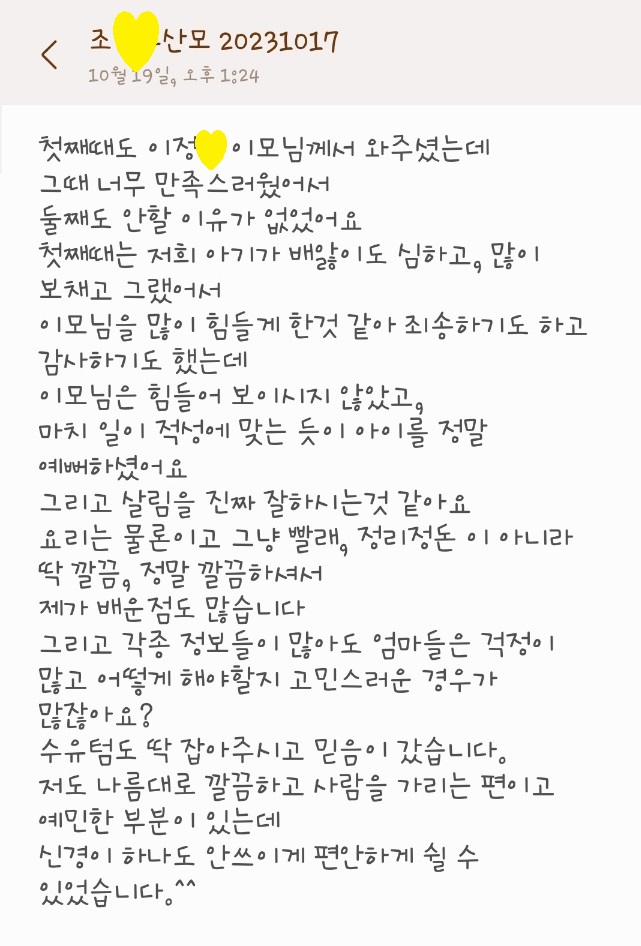 조 산모 20231017
10월 19일, 오후 1:24
첫째때도 이정 이모님께서 와주셨는데
그때 너무 만족스러웠어서
둘째도 안할 이유가 없었어요
첫째때는 저희 아기가 배앓이도 심하고, 많이
보채고 그랬어서
이모님을 많이 힘들게 한것 같아 죄송하기도 하고
감사하기도 했는데
이모님은 힘들어 보이시지 않았고,
마치 일이 적성에 맞는 듯이 아이를 정말
예뻐하셨어요
그리고 살림을 진짜 잘하시는것 같아요
요리는 물론이고 그냥 빨래, 정리정돈 이 아니라
딱 깔끔, 정말 깔끔하셔서
제가 배운점도 많습니다
그리고 각종 정보들이 많아도 엄마들은 걱정이
많고 어떻게 해야할지 고민스러운 경우가
많잖아요?
수유텀도 딱 잡아주시고 믿음이 갔습니다.
저도 나름대로 깔끔하고 사람을 가리는 편이고
예민한 부분이 있는데
신경이 하나도 안쓰이게 편안하게 쉴 수
있었습니다.^^